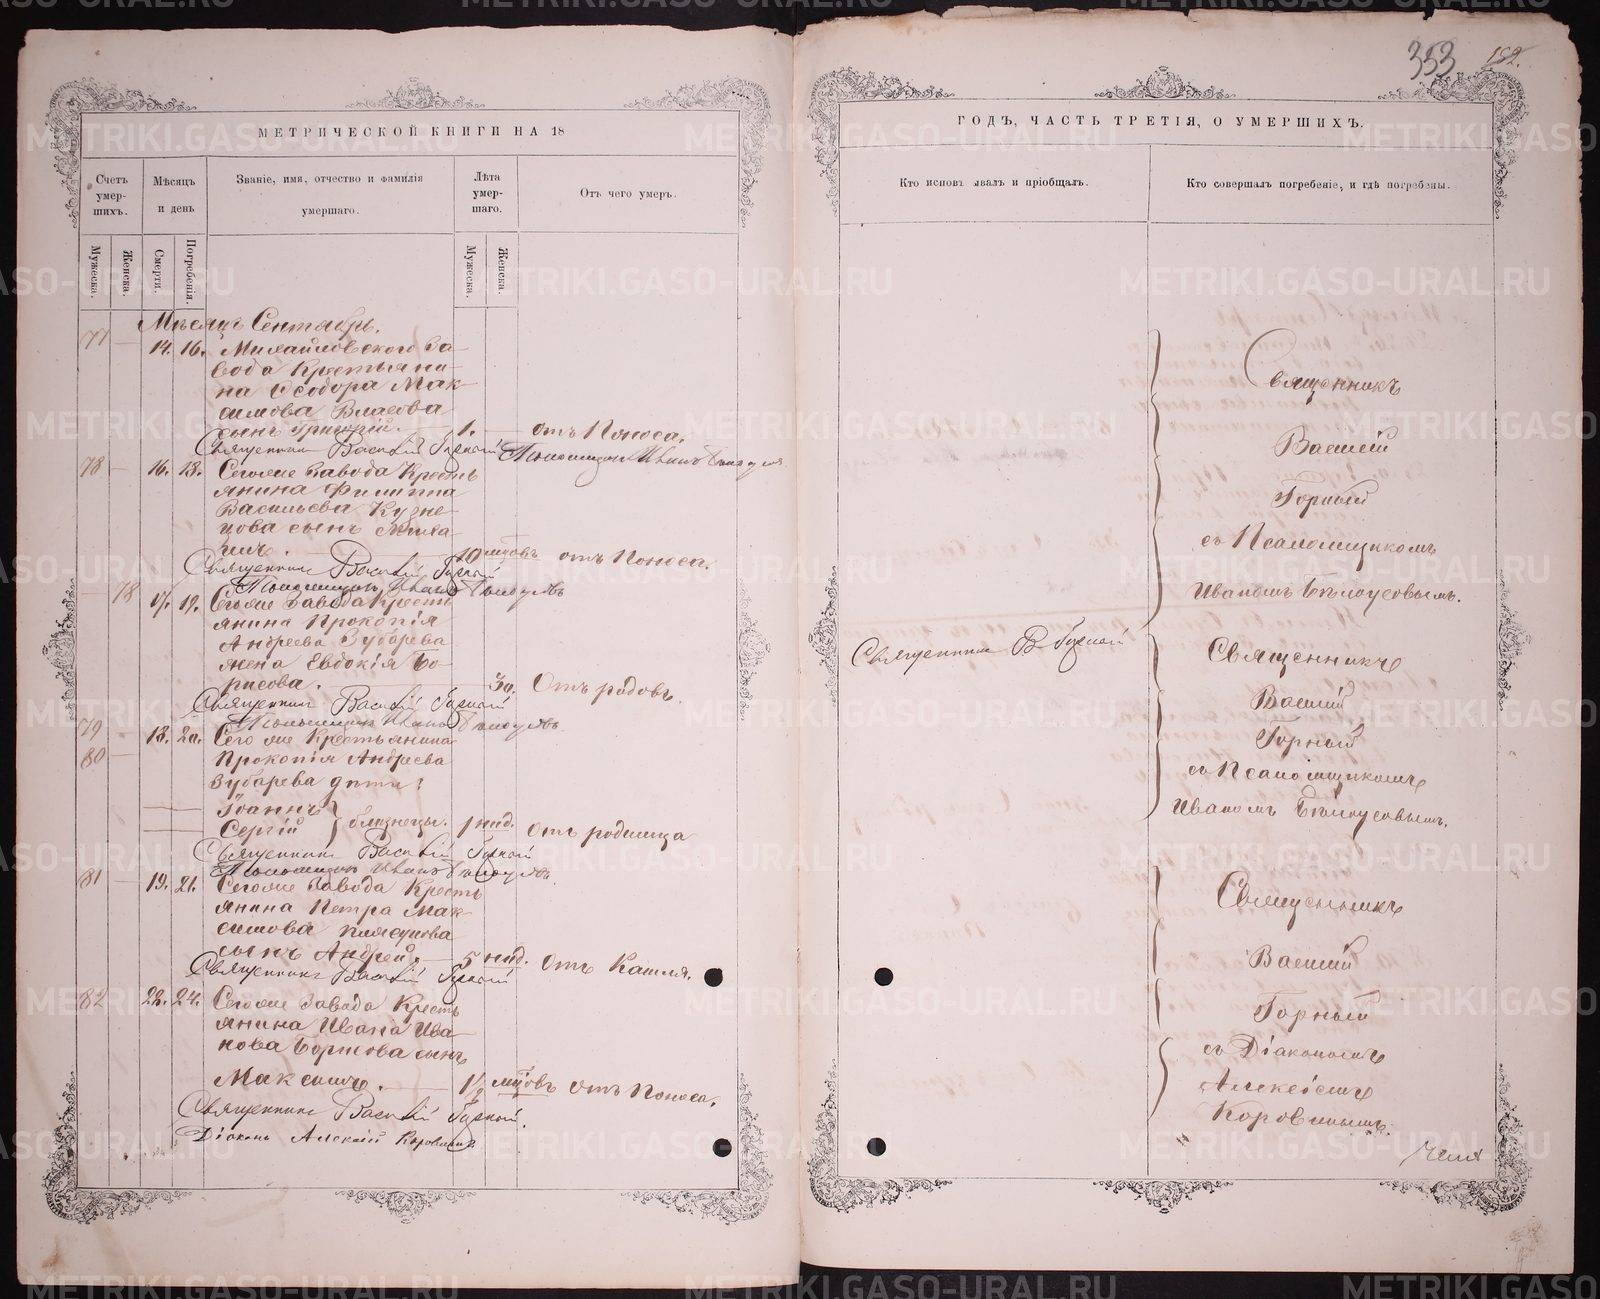 МЕТРИЧЕСКОЙ КНИГИ НА 18
Счетъ умер-шихъ.
Мѣсяцъ и день
Званіе, имя, отчество и фамилія умершаго.
Лѣта умер-шаго.
Отъ чего умеръ.
Мужеска.
Женска.
Смерти.
Погребенія.
Мужеска.
Женска.
Мѣсяцъ Сентябрь.
77 — 14. 16. Михайловского за-
вода Крестьяни-
на Ѳеодора Мак-
симова Власова
сынъ Григорій. — 1. — отъ Поноса.
Священникъ Василій Горный Псаломщикъ Иванъ Бѣлоусовъ
78 — 16. 18. Сегоже Завода Кресть
янина Филиппа
Васильева Кузне-
цова сынъ Миха
илъ. — 10 мцовъ отъ Поноса.
Священникъ Василій Горный
Псаломщикъ Иванъ Бѣлоусовъ
— 78 17. 19. Сегоже Завода Кресть
янина Прокопія
Андреева Зубарева
жена Евдокія Бо-
рисова. — 30. Отъ родовъ.
Священникъ Василій Горный
Псаломщикъ Иванъ Бѣлоусовъ
79 — 18. 20. Сего же Крестьянина
80 — Прокопія Андреева
Зубарева дѣти:
Іоаннъ
Сергій } близнецы. 1 нед. Отъ родимца
Священникъ Василій Горный
Псаломщикъ Иванъ Бѣлоусовъ
81 — 19. 21. Сегоже Завода Кресть
янина Петра Мак-
симова
сынъ Андрей. — 5 нед. Отъ Кашля.
Священникъ Василій Горный
82 22. 24. Сегоже Завода Кресть
янина Ивана Ива
нова сынъ
Максимъ. — 1½ мцовъ отъ Поноса.
Священникъ Василій Горный.
Діаконъ Алексій Коровинъ
353 152.
ГОДЪ, ЧАСТЬ ТРЕТІЯ, О УМЕРШИХЪ.
Кто исповѣдывалъ и пріобщалъ.
Кто совершалъ погребеніе, и гдѣ погребены.
Священникъ
Василій
Горный
съ Псаломщикомъ
Иваномъ Бѣлоусовымъ.
Священникъ В. Горный
Священникъ
Василій
Горный
съ Псаломщикомъ
Иваномъ Бѣлоусовымъ.
Священникъ
Василій
Горный
съ Діакономъ
Алексіемъ
Коровинымъ.
METRIKI.GASO-URAL.RU